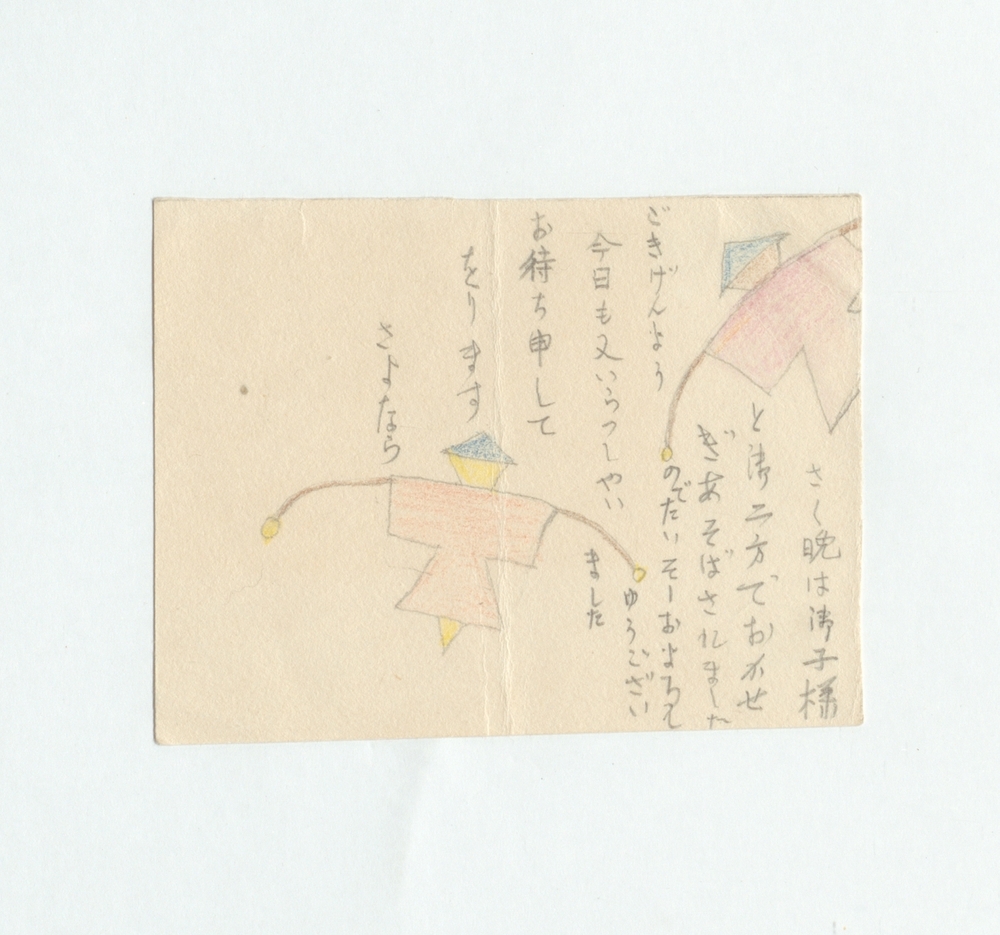 さく晩は御子様
と御二方でおかせ
ぎあそばされました
のでたいそーおよろし
ゆうござい
ました
ごきげんよう
今日も又いらつしやい
お待ち申して
をります
さよなら